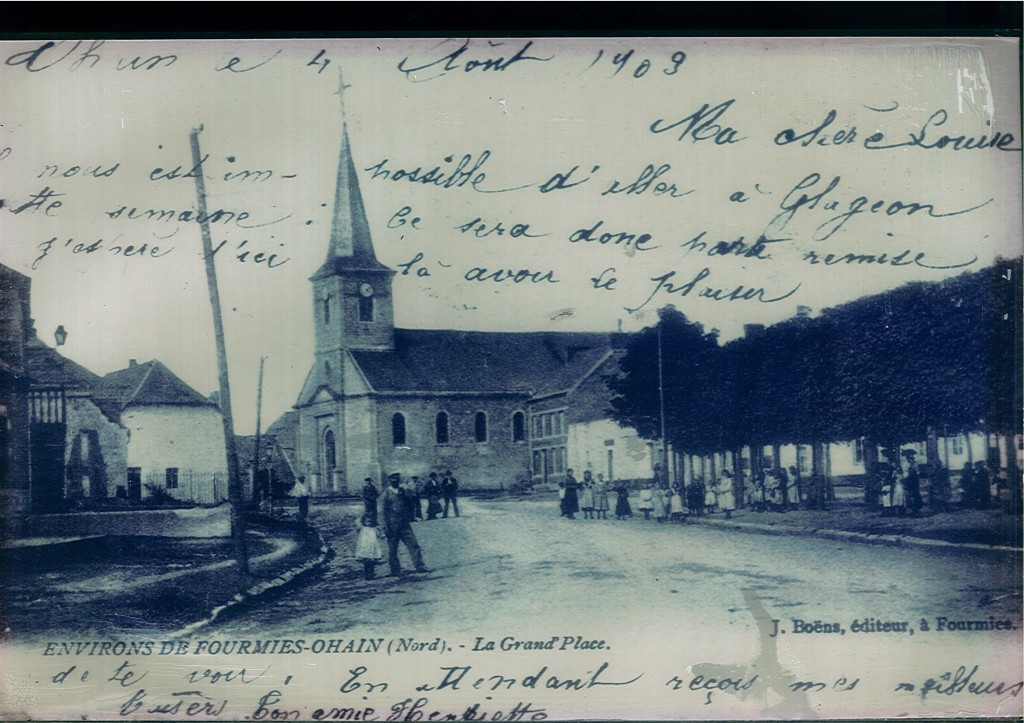 Ohain le 4 Août 1903
Ma chère Louise
Il nous est im- possible d'aller à Glageon
cette semaine. Ce sera donc partie remise
j'espère d'ici là avoir le plaisir
ENVIRONS DE FOURMIES-OHAIN (Nord). - La Grand'Place.
J. Boëns, éditeur, à Fourmies.
de te voir. En attendant reçois mes meilleurs
baisers Ton amie Henriette